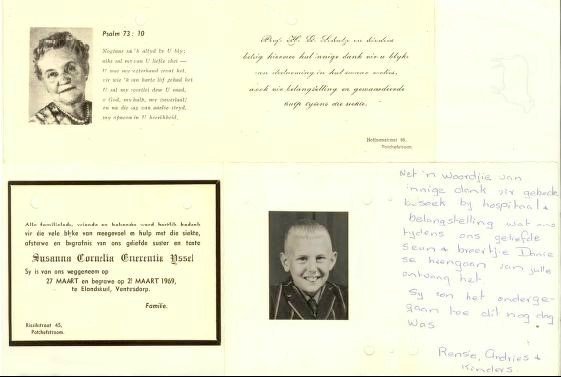 Psalm 73 : 10
Nogtans sa'k altyd by U bly;
alles sal my van U liefde skei —
U was my vaderhand
vir wie 'k van harte lief gehad het
U sal my voortlei deur U raad,
o God, my hulp, my toeverlaat;
en na die dag van aardse stryd,
my opneem in U heerlikheid.
Prof. H. G. Schulze en dierbares
betuig hiermee hul innige dank vir u blyke
van deelneming in hul swaar verlies,
asook vir belangstelling en gewaardeerde
hulp tydens die siekte.
Hoffmanstraat 95,
Potchefstroom.
Alle familielede, vriende en bekendes word hartlik bedank
vir die vele blyke van meegevoel en hulp met die siekte,
afsterwe en begrafnis van ons geliefde suster en tante
Susanna Cornelia Enerentia Yssel
Sy is van ons weggeneem op
27 MAART en begrawe op 21 MAART 1969,
te Elandskuil, Ventersdorp.
Familie.
Rissikstraat 45,
Potchefstroom.
Net 'n woordjie van
innige dank vir gebede
besoek by hospitaal &
belangstelling wat ons
tydens ons geliefde
seun & broertjie
se heengaan van julle
ontvang het.
Sy son het onderge-
gaan toe dit nog dag
was
Rensie, Andries &
Kinders.